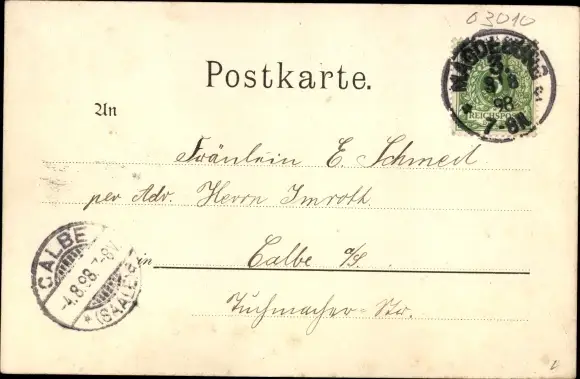 03010
MAGDEBURG
3.
8
98
7-8N.
REICHSPOST
Postkarte.
An
Fräulein E. Schmedt
per Adr. Herrn Imroth
in Calbe a/S.
Tuchmacher-Str.
CALBE
-4.8.98. 7-8V.
* (SAALE)